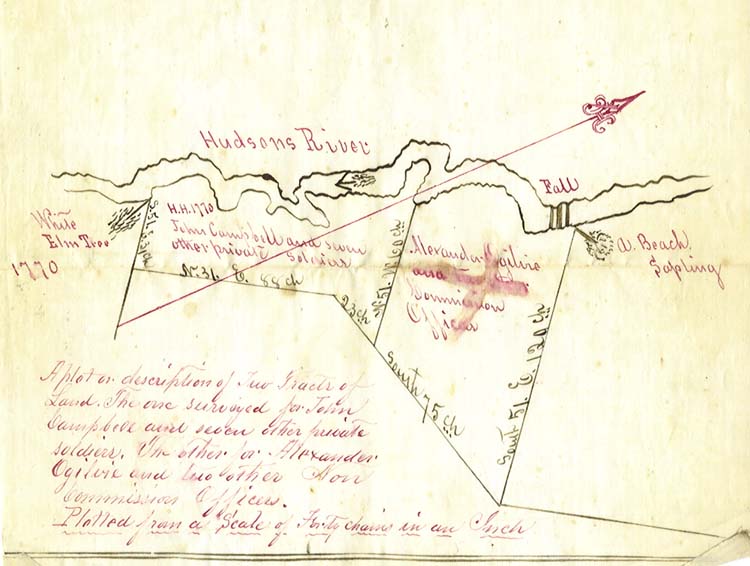 Hudsons River
Fall
White
Elm Tree
1770
H.H. 1770
John Campbell and seven
other private Soldiers
Alexander Ogilvie
and
Commission
Officer
A. Beach
Sapling
N. 31. E. 88 ch
23 ch
N. 51. W 60 ch
South 75 ch
South 51. E. 120 ch
A plot or description of Two Tracts of
Land. The one surveyed for John
Campbell and seven other private
soldiers. The other or Alexander
Ogilvie and two other Non
Commission Officers.
Plotted from a Scale of Forty chains in an Inch